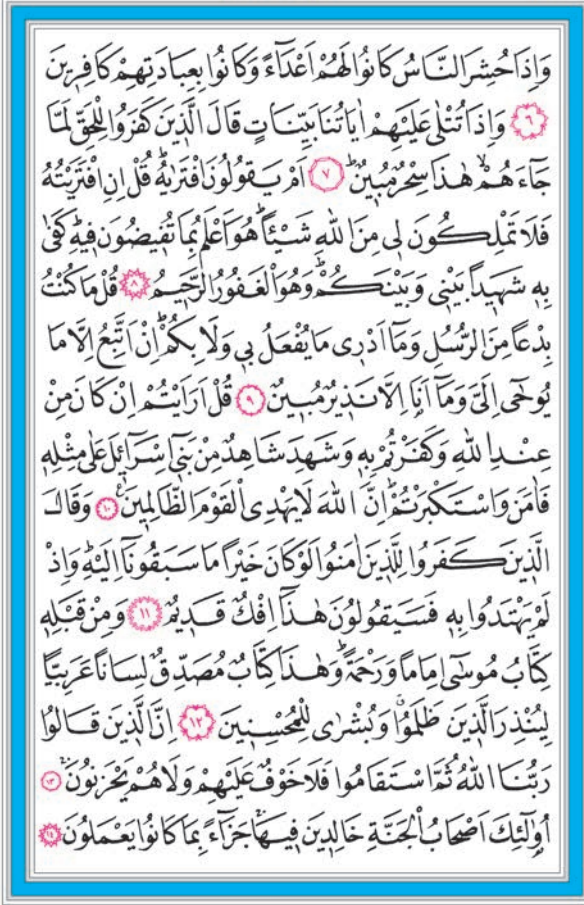 وَاِذَا حُشِرَ النَّاسُ كَانُوا لَهُمْ اَعْدَٓاءً وَكَانُوا بِعِبَادَتِهِمْ كَافِر۪ينَ
﴿٦﴾ وَاِذَا تُتْلٰى عَلَيْهِمْ اٰيَاتُنَا بَيِّنَاتٍ قَالَ الَّذ۪ينَ كَفَرُوا لِلْحَقِّ لَمَّا
جَٓاءَهُمْۙ هٰذَا سِحْرٌ مُب۪ينٌۜ ﴿٧﴾ اَمْ يَقُولُونَ افْتَرٰيهُۜ قُلْ اِنِ افْتَرَيْتُهُ
فَلَا تَمْلِكُونَ ل۪ي مِنَ اللّٰهِ شَيْـًٔاۜ هُوَ اَعْلَمُ بِمَا تُف۪يضُونَ ف۪يهِۜ كَفٰى
بِه۪ شَه۪يدًا بَيْن۪ي وَبَيْنَكُمْۜ وَهُوَ الْغَفُورُ الرَّح۪يمُ ﴿٨﴾ قُلْ مَا كُنْتُ
بِدْعًا مِنَ الرُّسُلِ وَمَٓا اَدْر۪ي مَا يُفْعَلُ ب۪ي وَلَا بِكُمْۜ اِنْ اَتَّبِعُ اِلَّا مَا
يُوحٰٓى اِلَيَّ وَمَٓا اَنَا۬ اِلَّا نَذ۪يرٌ مُب۪ينٌ ﴿٩﴾ قُلْ اَرَاَيْتُمْ اِنْ كَانَ مِنْ
عِنْدِ اللّٰهِ وَكَفَرْتُمْ بِه۪ وَشَهِدَ شَاهِدٌ مِنْ بَن۪ٓي اِسْرَٓائ۪لَ عَلٰى مِثْلِه۪
فَاٰمَنَ وَاسْتَكْبَرْتُمْۜ اِنَّ اللّٰهَ لَا يَهْدِي الْقَوْمَ الظَّالِم۪ينَ۟ ﴿١٠﴾ وَقَالَ
الَّذ۪ينَ كَفَرُوا لِلَّذ۪ينَ اٰمَنُوا لَوْ كَانَ خَيْرًا مَا سَبَقُونَٓا اِلَيْهِۜ وَاِذْ
لَمْ يَهْتَدُوا بِه۪ فَسَيَقُولُونَ هٰذَٓا اِفْكٌ قَد۪يمٌ ﴿١١﴾ وَمِنْ قَبْلِه۪
كِتَابُ مُوسٰٓى اِمَامًا وَرَحْمَةًۜ وَهٰذَا كِتَابٌ مُصَدِّقٌ لِسَانًا عَرَبِيًّا
لِيُنْذِرَ الَّذ۪ينَ ظَلَمُواۗ وَبُشْرٰى لِلْمُحْسِن۪ينَ ﴿١٢﴾ اِنَّ الَّذ۪ينَ قَالُوا
رَبُّنَا اللّٰهُ ثُمَّ اسْتَقَامُوا فَلَا خَوْفٌ عَلَيْهِمْ وَلَا هُمْ يَحْزَنُونَۚ ﴿١٣﴾
اُو۬لٰٓئِكَ اَصْحَابُ الْجَنَّةِ خَالِد۪ينَ ف۪يهَاۚ جَزَٓاءً بِمَا كَانُوا يَعْمَلُونَ ﴿١٤﴾